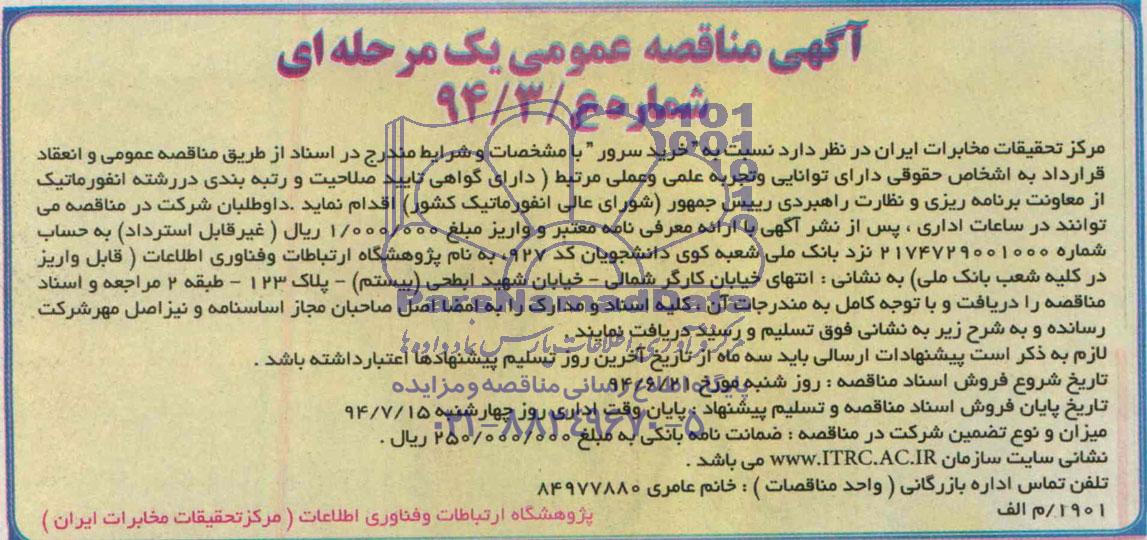 آگهی مناقصه عمومی یک مرحله ای
شماره ع/۹۴/۳
مرکز تحقیقات مخابرات ایران در نظر دارد نسبت به "خرید سرور" با مشخصات و شرایط مندرج در اسناد از طریق مناقصه عمومی و انعقاد
قرارداد به اشخاص حقوقی دارای توانایی وتجربه علمی وعملی مرتبط ( دارای گواهی تایید صلاحیت و رتبه بندی دررشته انفورماتیک
از معاونت برنامه ریزی و نظارت راهبردی رییس جمهور (شورای عالی انفورماتیک کشور) اقدام نماید .داوطلبان شرکت در مناقصه می
توانند در ساعات اداری ، پس از نشر آگهی با ارائه معرفی نامه معتبر و واریز مبلغ ۱/۰۰۰/۰۰۰ ریال ( غیرقابل استرداد) به حساب
شماره ۲۱۷۴۷۲۹۰۰۱۰۰۰ نزد بانک ملی شعبه کوی دانشجویان کد ۹۲۷۰ به نام پژوهشگاه ارتباطات وفناوری اطلاعات ( قابل واریز
در کلیه شعب بانک ملی) به نشانی : انتهای خیابان کارگر شمالی - خیابان شهید ابطحی (بیستم) - پلاک ۱۲۳ - طبقه ۲ مراجعه و اسناد
مناقصه را دریافت و با توجه کامل به مندرجات آن ، کلیه اسناد و مدارک را به امضا اصل صاحبان مجاز اساسنامه و نیزاصل مهرشرکت
رسانده و به شرح زیر به نشانی فوق تسلیم و رسید دریافت نمایند.
لازم به ذکر است پیشنهادات ارسالی باید سه ماه از تاریخ آخرین روز تسلیم پیشنهادها اعتبارداشته باشد .
تاریخ شروع فروش اسناد مناقصه : روز شنبه مورخ ۹۴/۶/۲۱
تاریخ پایان فروش اسناد مناقصه و تسلیم پیشنهاد : پایان وقت اداری روز چهارشنبه ۹۴/۷/۱۵
میزان و نوع تضمین شرکت در مناقصه : ضمانت نامه بانکی به مبلغ ۲۵۰/۰۰۰/۰۰۰ ریال .
نشانی سایت سازمان www.ITRC.AC.IR می باشد .
تلفن تماس اداره بازرگانی ( واحد مناقصات ) : خانم عامری ۸۴۹۷۷۸۸۰
۱۹۰۱/م الف
پژوهشگاه ارتباطات وفناوری اطلاعات ( مرکزتحقیقات مخابرات ایران )
پایگاه اطلاع رسانی مناقصه و مزایده
۰۲۱-۸۸۳۴۹۶۷۰-۵